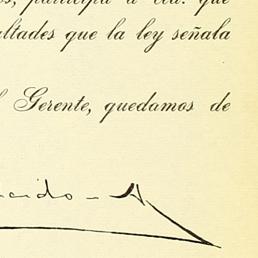 participa a Ud. que
ultades que la ley señala
Gerente, quedamos de
cido - A